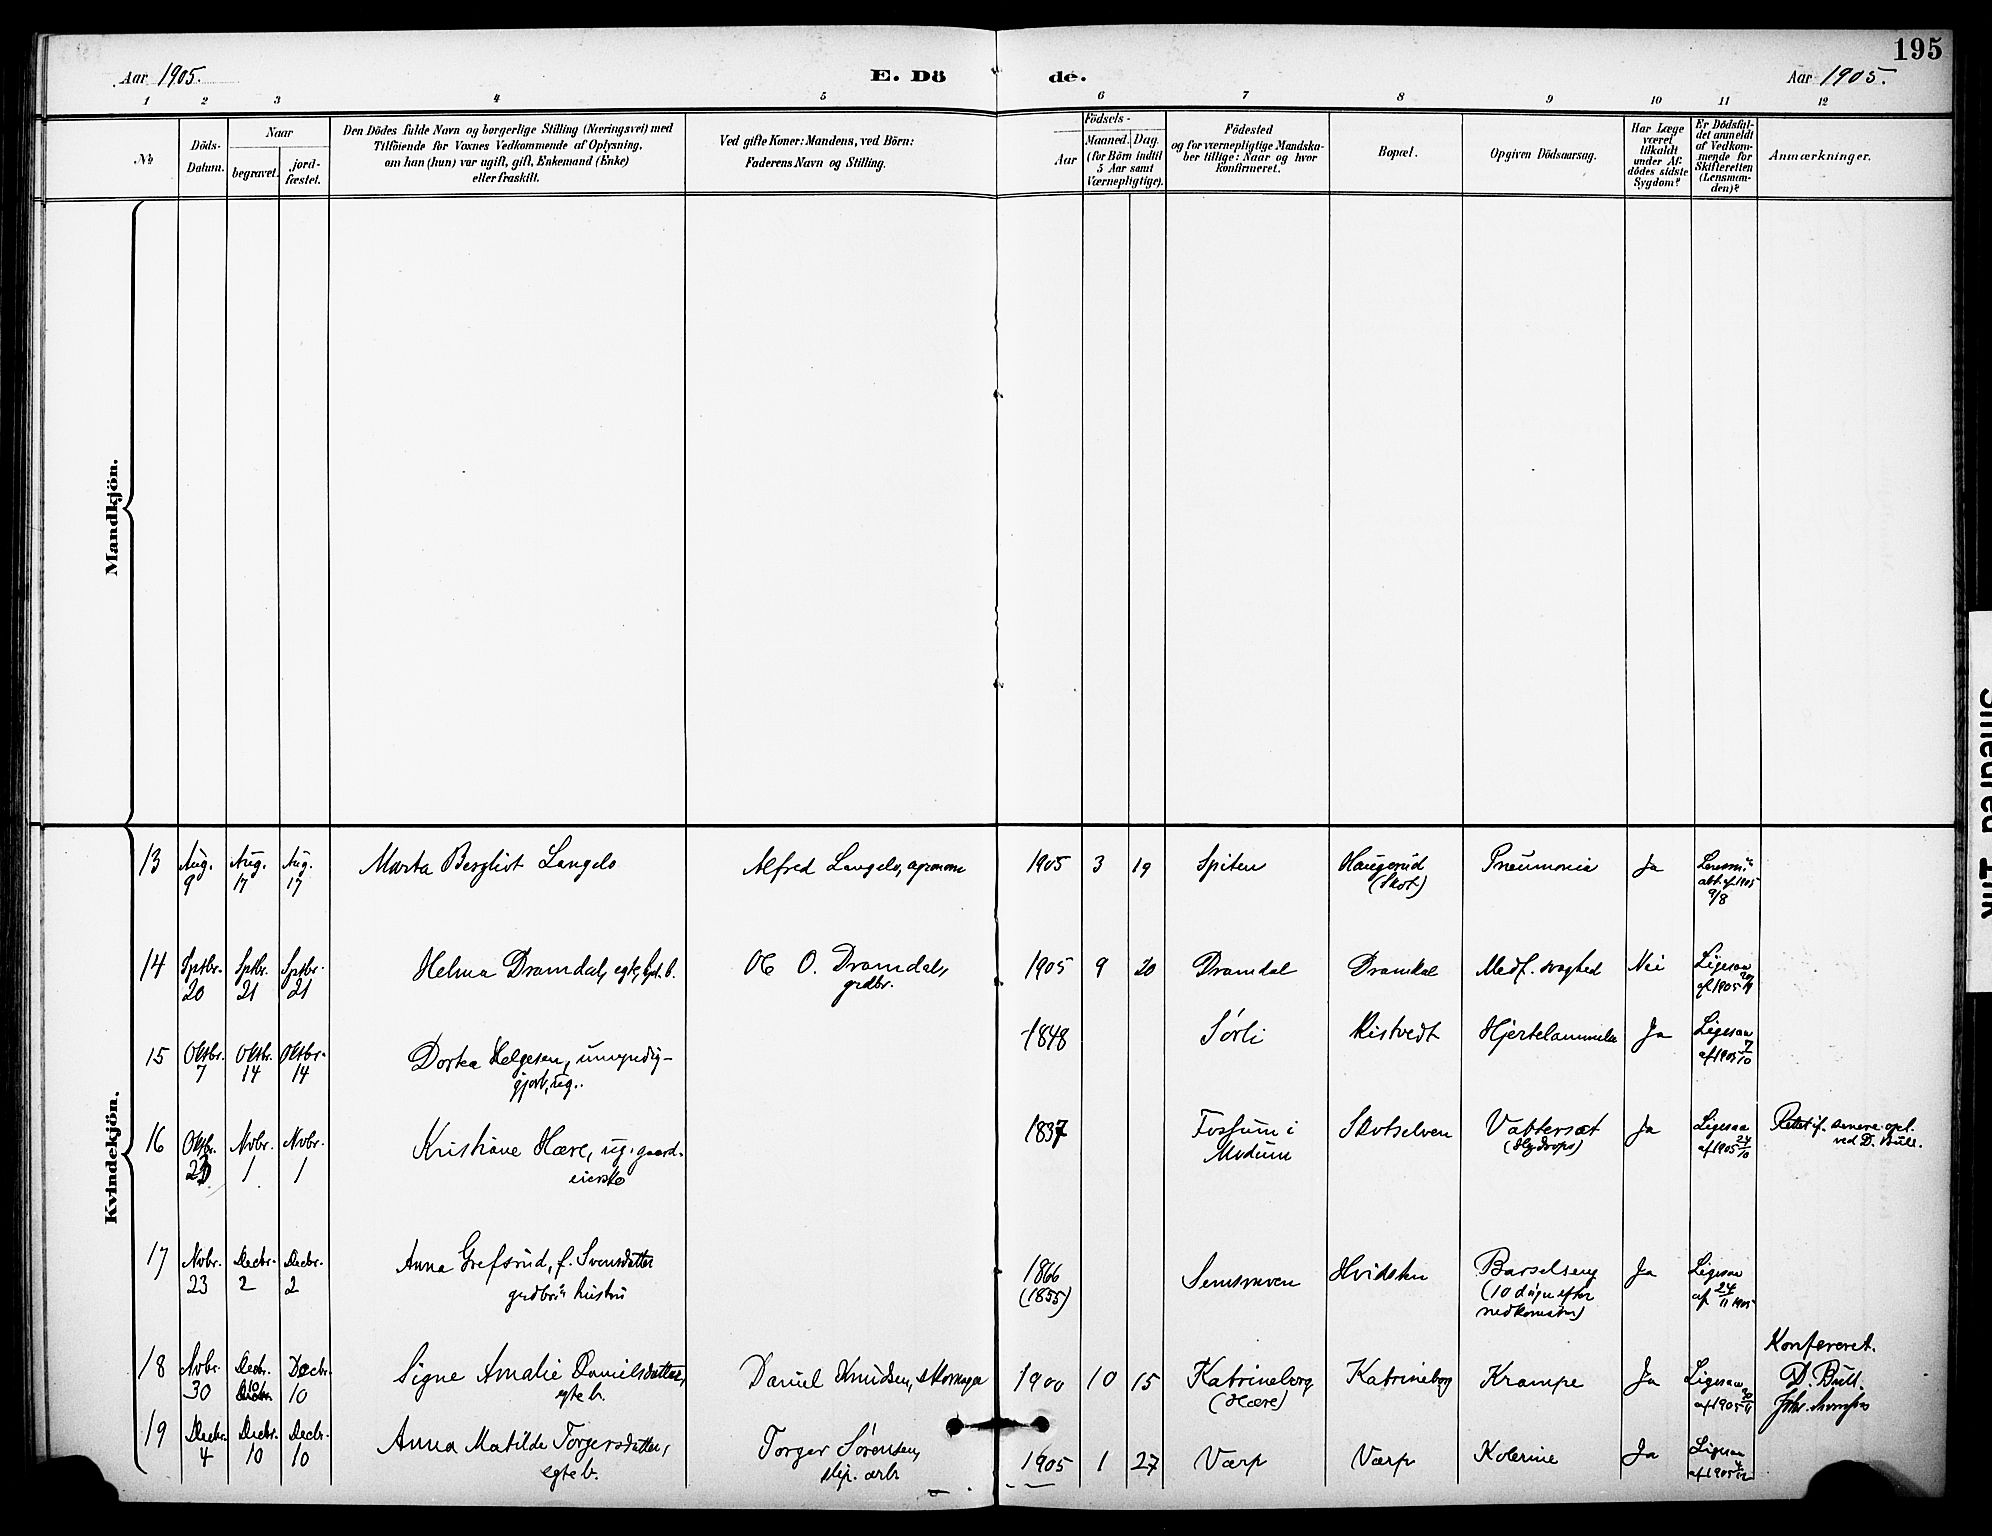 195
Aar 1905. E. Dö de. Aar 1905.
1 2 3 4 5 6 7 8 9 10 11 12
No
Döds-
Datum.
Naar
begravet.
jord-
fæstet.
Den Dödes fulde Navn og borgerlige Stilling (Næringsvei) med
Tilföiende for Voxnes Vedkommende af Oplysning,
om han (hun) var ugift, gift, Enkemand (Enke)
eller fraskilt.
Ved gifte Koner: Mandens, ved Börn:
Faderens Navn og Stilling.
Födsels-
Aar
Maaned. Dag.
(for Börn indtil
5 Aar samt
Værnepligtige).
Födested
og for værnepligtige Mandska-
ber tillige: Naar og hvor
konfirmeret.
Bopæl.
Opgiven Dödsaarsag.
Har Læge
været
tilkaldt
under Af-
dödes sidste
Sygdom?
Er Dödsfal-
det anmeldt
af Vedkom-
mende for
Skifteretten
(Lensman-
den)?
Anmærkninger.
Mandkjön.
Kvindekjön.
13 Aug. 9 Aug. 17 Aug. 17 Marta Bergliot Langelo Alfred Langelo, agronom 1905 3 19 Spiten Haugerud (Skot.) Pneumonia Ja
af 1905
9/8
14 Sptbr. 20 Sptbr. 21 Sptbr. 21 Helma Dramdal, O. Dramdal, 1905 9 20 Dramdal Dramdal Medf. svaghed Nei
grdbr.
15 Oktbr. 7 Oktbr. 14 Oktbr. 14 Dortea Helgesen, umyndig-
gjort, ug. 1848 Sørli Ristvedt Hjertelammelse Ja Ligesaa
af 1905 7/10
16 Oktbr. Nvbr. 1 Nvbr. 1 Kristiane Hære, ug. gaard-
eierske 1837 Fossum i
Modum Skotselven Vattersot
(Hydrops) Ja Ligesaa
af 1905 24/10
ved D. Bull.
17 Nvbr. 23 Decbr. 2 Decbr. 2 Anna Grefsrud, f. Svensdatter
grdbr.s hustru 1866
(1855) Semsmoen Hvidsten Barselseng
(10 døgn efter
nedkomsten) Ja Ligesaa
af 24/11 1905
18 Nvbr. 30 Decbr. 10 Decbr. 10 Signe Amalie Danielsdatter,
egte b. Daniel Knudsen, 1900 10 15 Katrineborg
(Hære) Katrineborg Krampe Ja Ligesaa
af 1905 30/11
Konfereret.
D. Bull.
19 Decbr. 4 Decbr. 10 Decbr. 10 Anna Matilde Torgersdatter,
egte b. Torger Sørensen,
slip. arb 1905 1 27 Værp Værp Kolerine Ja Ligesaa
af 1905 4/12